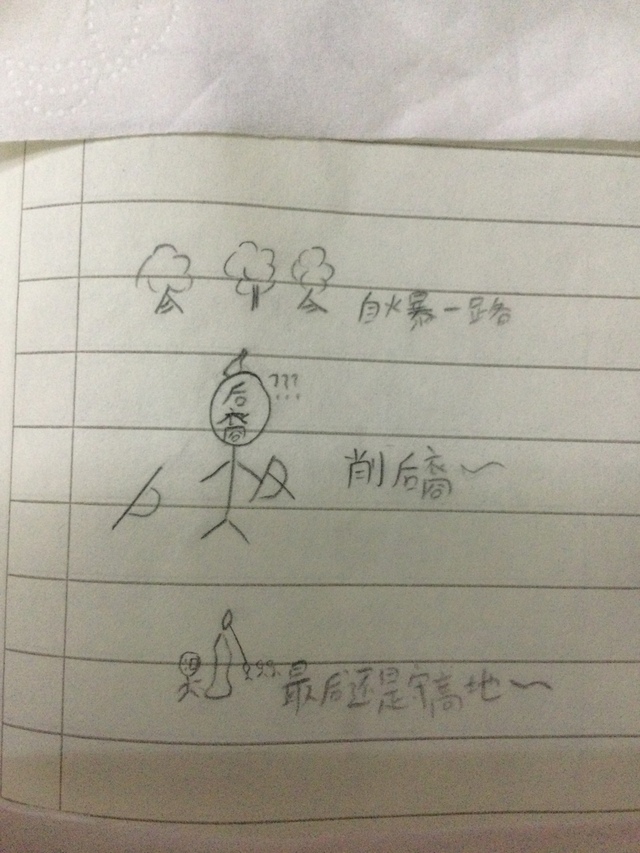 自爆一路
???
后
裔
削后裔~
最后还是守高地~